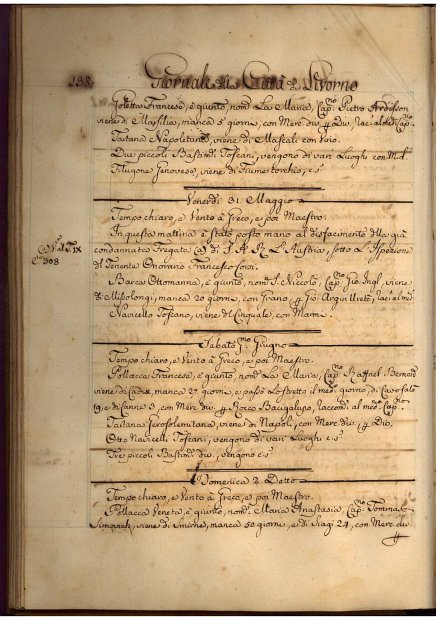 138. Giornale della Città di Livorno
Polacca Francese, è giunto, nom.to La Maria, Cap.no Pietro
viene di Marsilia, manca 5 giorni, con Merc: div: p Div:
Tartana Napolitana, viene di Mascali con Vino.
Due piccoli Bastim.ti Toscani, vengono di vari Luoghi con M.d.
Filugone Genovese, viene di Fiume torchio, e s.
Venerdì 31. Maggio
Tempo chiaro, e Vento à Greco, e poi Maestro.
In questa mattina è stato posto mano al disfacimento della già
condannata Fregata (a) di S. A. R. L'Austria, sotto L'Ispezione
del Tenente Onorario Francesco
(a) Vol. IX
308
Barca Ottomanna, è giunto, nom.to S. Niccolò, Cap.no Gio: Ingl: viene
di Missolongi, manca 20 giorni, con Grano, p Gio:
Navicello Toscano, viene del Cinquale, con Marmi.
Sabato P.mo Giugno
Tempo chiaro, e Vento à Greco, e poi Maestro.
Pollacca Francese, è giunto, nom.to La Maria, Cap.no Raffael
viene di Cadix, manca 27. giorni, e passò Lo stretto il med.o giorno, di Capo
19, e di Canne 3, con Merc: div: p Rocco Bacigalupo, raccom: al med.o Cap.no
Tartana Gerosolemitana, viene di Napoli, con Merc: div: p Div:
Otto Navicelli Toscani, vengono di vari Luoghi e s.
Tre piccoli Bastim.ti div:, vengono e s.
Domenica 2. Detto
Tempo chiaro, e Vento à Greco, e poi Maestro.
Pollacca Veneta, è giunto, nom.to Maria Anastasia, Cap.no Tommaso
Simovich, viene di Smirne, manca 50 giorni, e di Siagi 24, con Merc: div:
p